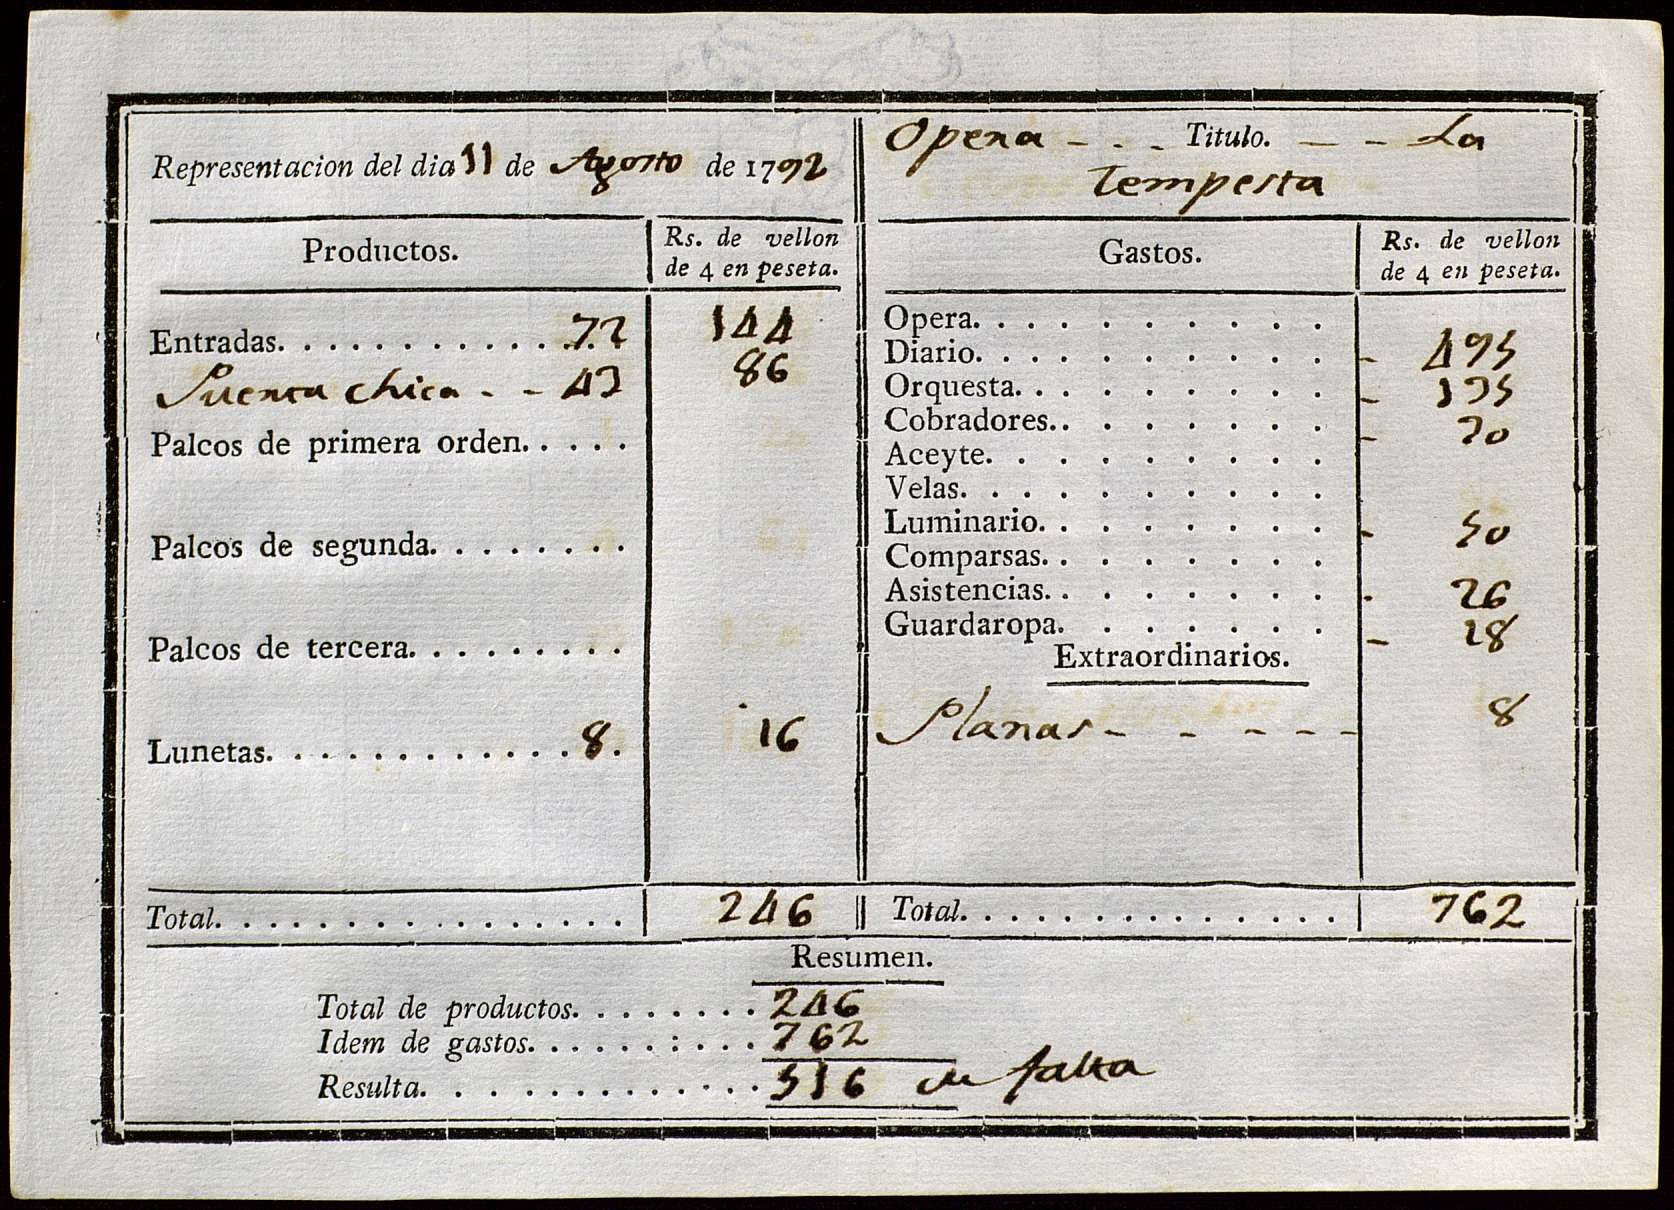 Representacion del dia 11 de Agosto de 1792
Opera - - - Titulo. - - - La
Tempesta
Productos.
Rs. de vellon
de 4 en peseta.
Entradas. . . . . . . . . . . . 72 144
Puerta chica - - 43 86
Palcos de primera orden. . . . .
Palcos de segunda. . . . . . . .
Palcos de tercera. . . . . . . . .
Lunetas. . . . . . . . . . . . 8. 16
Total. . . . . . . . . . . . . . . . 246
Gastos.
Rs. de vellon
de 4 en peseta.
Opera. . . . . . . . . .
Diario. . . . . . . . . . - 495
Orquesta. . . . . . . . . - 135
Cobradores.. . . . . . . - 30
Aceyte. . . . . . . . .
Velas. . . . . . . . . .
Luminario. . . . . . . . - 50
Comparsas. . . . . . . .
Asistencias. . . . . . . . - 26
Guardaropa. . . . . . . - 18
Extraordinarios.
Planas - - - - - 8
Total. . . . . . . . . . . . . . 762
Resumen.
Total de productos. . . . . . . . 246
Idem de gastos. . . . . . : . . . 762
Resulta. . . . . . . . . . . . . 516 de falta